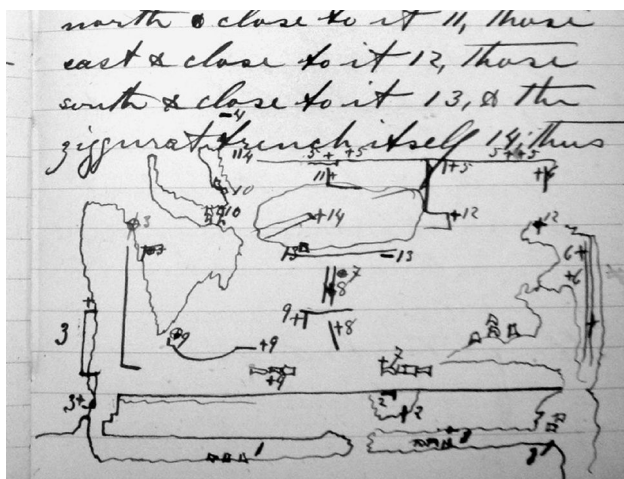 north & close to it 11, those
east & close to it 12, those
south & close to it 13, & the
ziggurat trench itself 14, thus
4
4 5 +5 +5 5++5 +4
11+
10
10 +14 +12 12
3
3 13 13 6+
7 +6
8
9+ +8
3 9 +9
7
+9
3+ 2 2
1 8
8